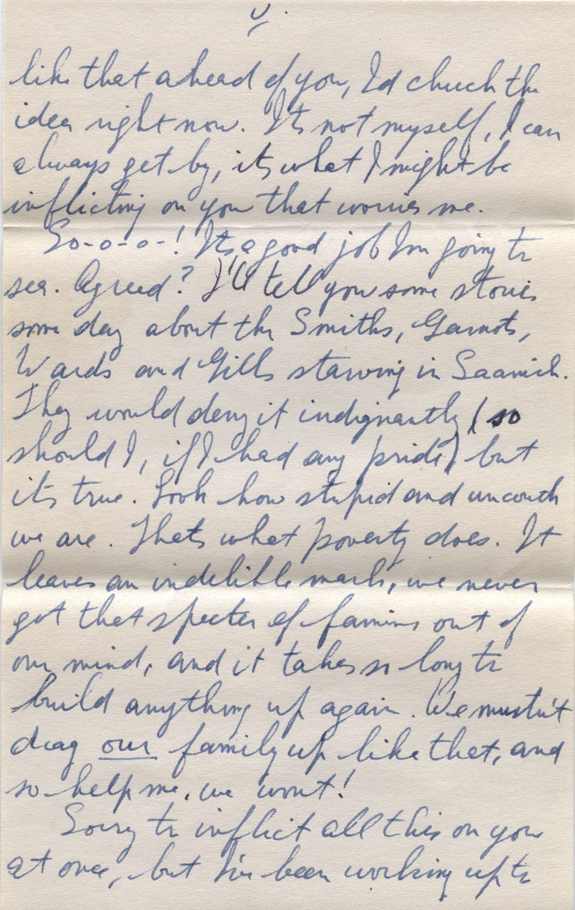 V.
like that ahead of you, I'd chuck the
idea right now. It's not myself, I can
always get by, it's what I might be
inflicting on you that worries me.
So-o-o-! Its a good job I'm going to
sea. Agreed? I'll tell you some stories
some day about the Smiths, Garnots,
Wards and Gills starving in Saanich.
They would deny it indignantly (so
should I, if I had any pride) but
it's true. Look how stupid and uncouth
we are. Thats what poverty does. It
leaves an indelible mark, we never
got that specter of famine out of
our mind, and it takes so long to
build anything up again. We mustn't
drag our family up like that, and
so help me, we won't!
Sorry to inflict all this on you
at once, but I've been working up to